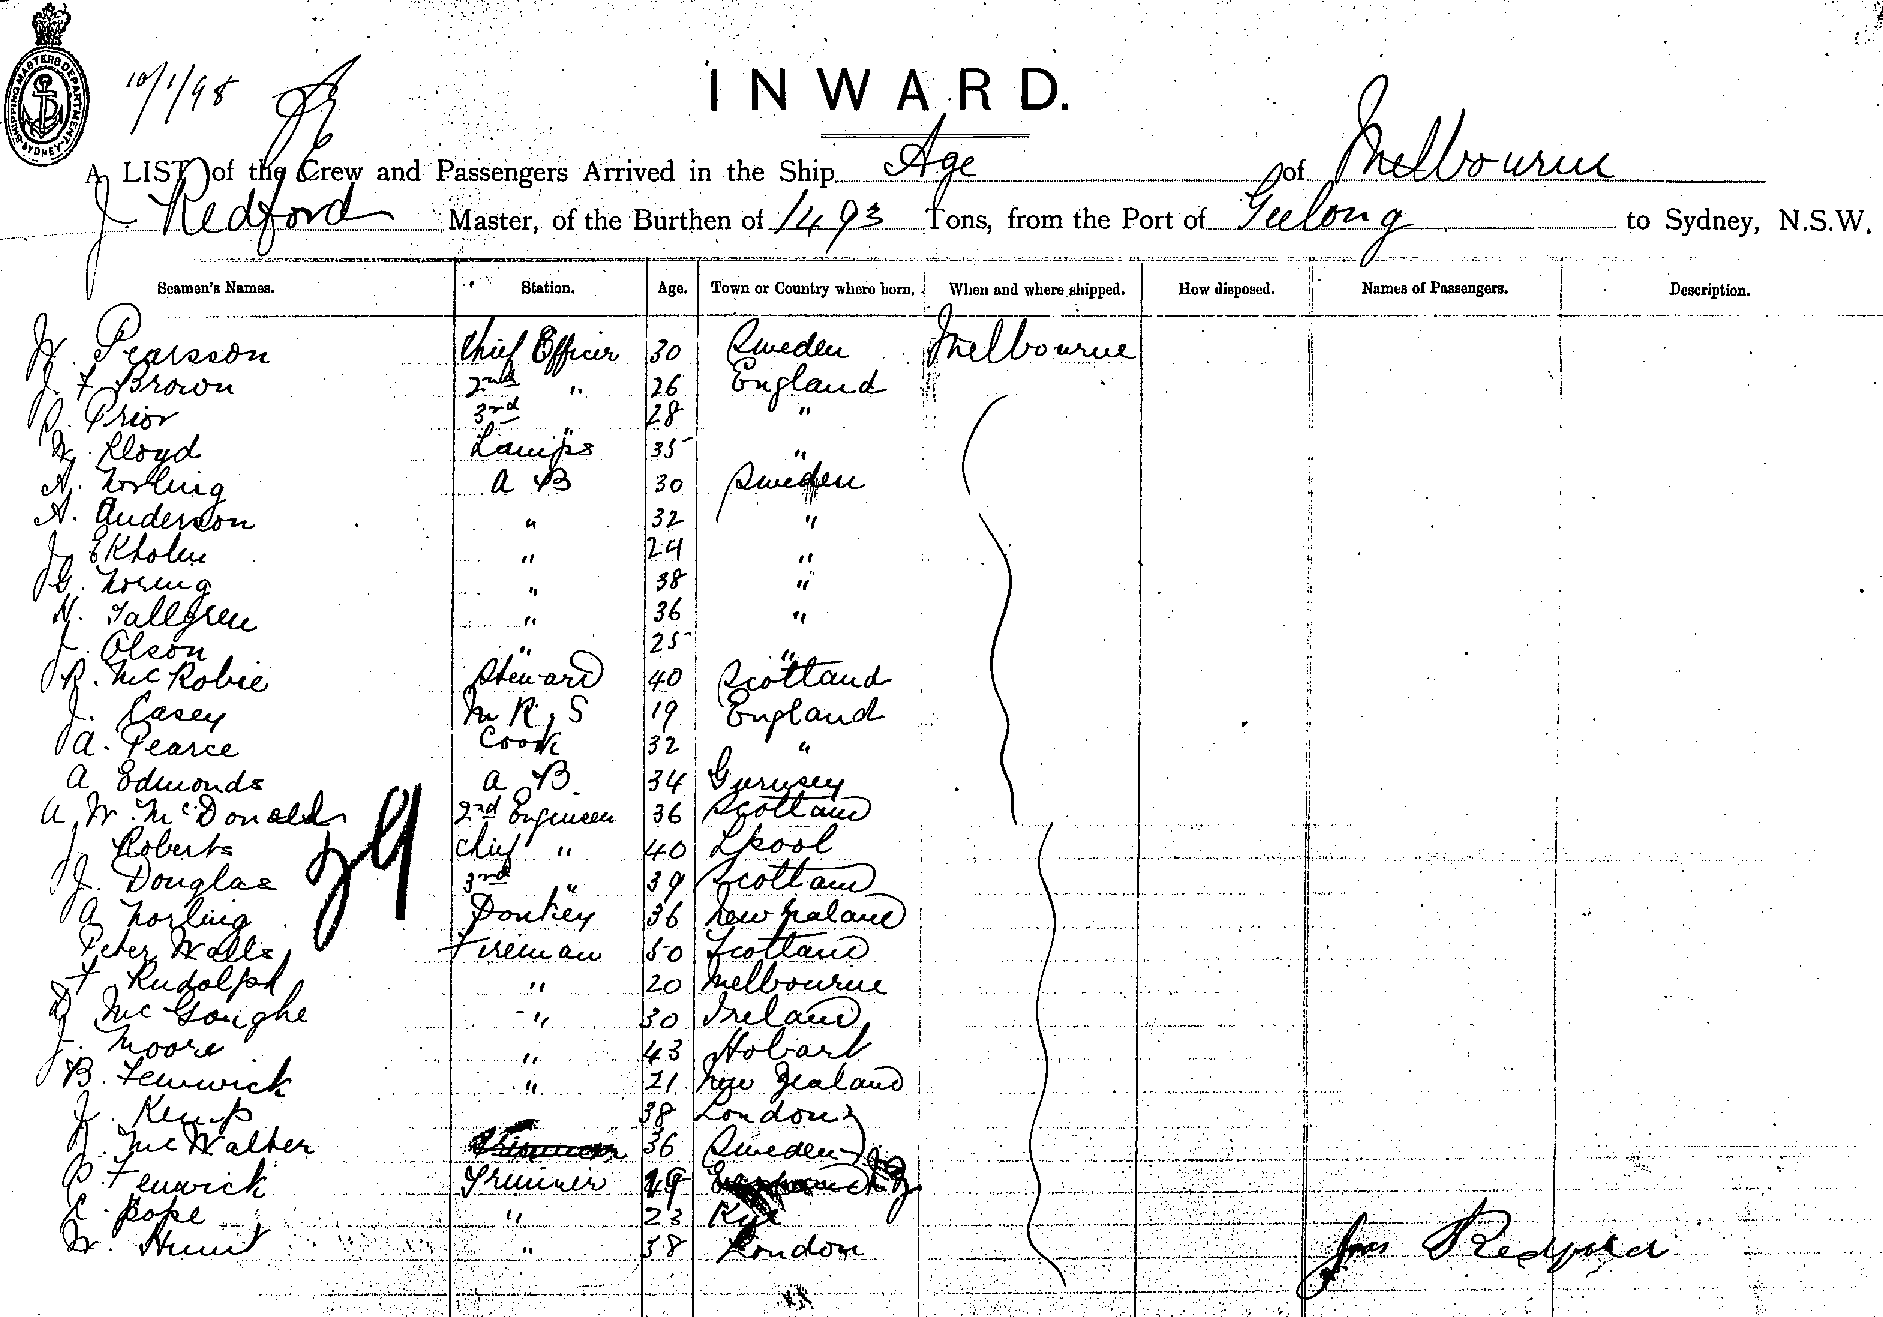 SHIPPING MASTERS DEPARTMENT SYDNEY
10/1/98
INWARD.
A LIST of the Crew and Passengers Arrived in the Ship Age of Melbourne
J Redford Master, of the Burthen of 1493 Tons, from the Port of Geelong to Sydney, N.S.W.
Seamen's Names. Station. Age. Town or Country where born, When and where shipped. How disposed. Names of Passengers. Description.
W. Pearsson Chief Officer 30 Sweden Melbourne
J. F Brown 2nd " 26 England
Prior 3rd " 28 "
W. Lloyd Lamps 35 "
A. Norling A B 30 Sweden
A. Anderson " 32 "
J. Ekholm " 24 "
G. Noring " 38 "
H. Tallgren " 36 "
J. Olson " 25 "
R. McRobie Steward 40 Scotland
J. Casey M R, S 19 England
A. Pearce Cook 32 "
A Edmonds A B. 34 Gurnsey
A W. McDonald 2nd Engineer 36 Scotland
J Roberts Chief " 40 Lpool
J. Douglas 3rd " 39 Scotland
A Norling Donkey 36 New Zealand
Peter Walls Fireman 50 Scotland
F Rudolph " 20 Melbourne
McGoughe " 30 Ireland
J. Moore " 43 Hobart
B. Fenwick " 21 New Zealand
J. Kemp 38 London
McWalter 36 Sweden
P Fenwick Trimmer 19
C. Pope " 23 Rye
W. Hunt " 38 London
29
Jas Redford